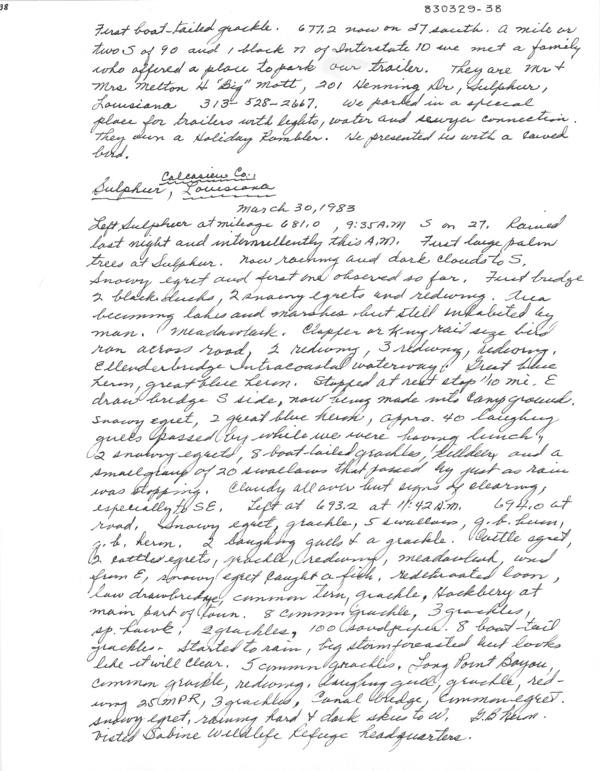 38
830329-38
First boat-tailed grackle. 677.2 now on 27 south. A mile or
two S of 90 and 1 block N of Interstate 10 we met a family
who offered a place to park our trailer. They are Mr +
Mrs Melton H "Big" Mott, 201 Henning Dr, Sulphur,
Louisiana 313-528-2667. We parked in a special
place for trailers with lights, water and sewyer connection.
They own a Holiday Rambler. He presented us with a carved
bird.
Calcasieu Co.,
Sulphur, Louisiana
March 30, 1983
Left Sulphur at mileage 681.0, 9:35 A.M S on 27. Rained
last night and intermittently this A.M. First large palm
trees at Sulphur. Now raining and dark clouds to S.
Snowy egret and first one observed so far. First bridge
2 black ducks, 2 snowy egrets and redwing. Area
becoming lakes and marshes but still inhabited by
man. Meadowlark. Clapper or King rail size bird
ran across road, 2 redwing, 3 redwing, redwing.
Ellender bridge Intracoastal waterway. Great blue
heron, great blue heron. Stopped at rest stop 1/10 mi. E
draw bridge S side, now being made into campground.
Snowy egret, 2 great blue heron, appro. 40 laughing
gulls passed by while we were having lunch,
2 snowy egrets, 8 boat-tailed grackles, killdeer and a
small group of 20 swallows that passed by just as rain
was stopping. Cloudy all over but signs of clearing,
especially to SE. Left at 693.2 at 11:42 A.M. 694.0 at
road. Snowy egret, grackle, 5 swallows, g.b. heron,
g.b. heron. 2 laughing gulls & a grackle. Cattle egret,
2 cattle egrets, grackle, redwing, meadowlark, wind
from E, snowy egret caught a fish, redthroated loon,
low drawbridge, common tern, grackle, Hackbery at
main part of town. 8 common grackle, 3 grackles,
sp. hawk, 2 grackles, 100 sandpiper. 8 boat-tail
grackles. Started to rain, big storm forecasted but looks
like it will clear. 5 common grackles, Long Point Bayou,
common grackle, redwing, laughing gull, grackle, red-
wing 25 MPR, 3 grackles, Canal bridge, Common egret.
Snowy egret, raining hard & dark skies to W. G.B heron.
Visted Sabine Wildlife Refuge headquarters.